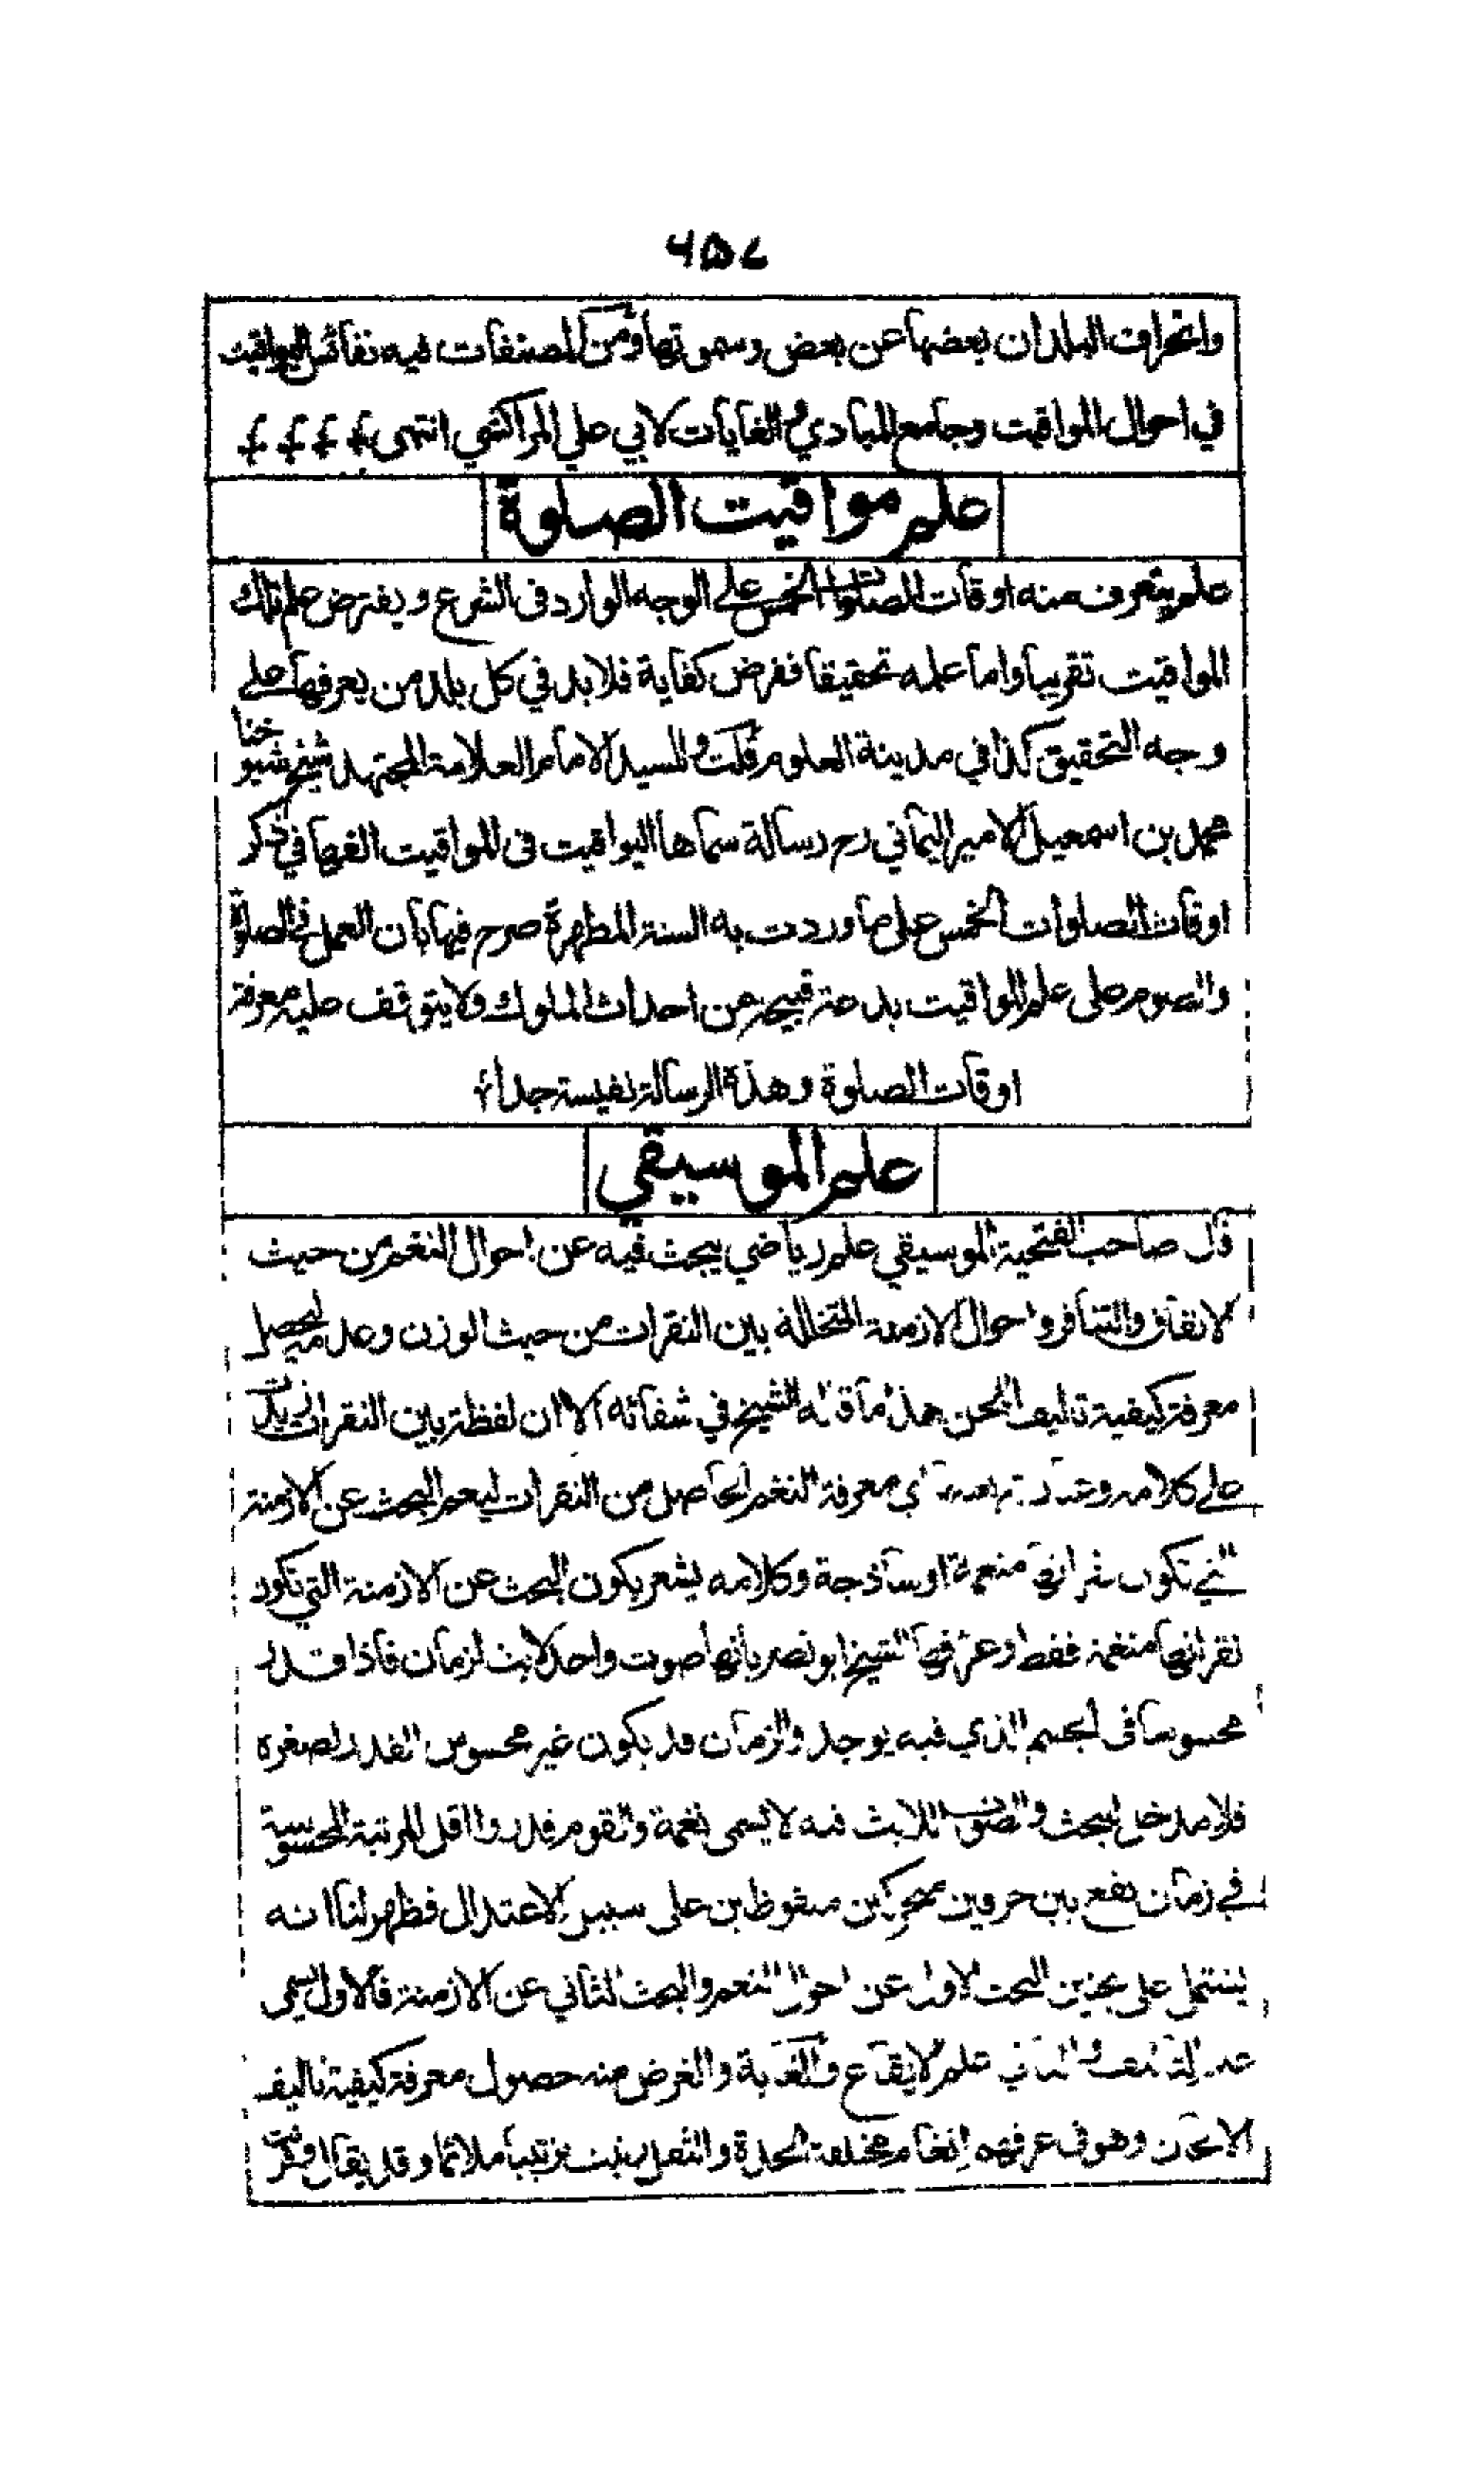 ٦٥٧
وانحراف البلدان بعضها عن بعض وسموتها ومن المصنفات فيه نفائس اليواقيت
في احوال المواقيت وجامع المبادي والغايات لابي علي المراكشي انتهى
علم مواقيت الصلوة
علم يتعرف منه اوقات الصلوات الخمس على الوجه الوارد في الشرع ويفترض علم تلك
المواقيت تقريبا واما علمه تحقيقا ففرض كفاية فلا بد في كل بلد من يعرفها على
وجه التحقيق كذا في مدينة العلوم قلت وللسيد الامام العلامة المجتهد شيخ شيوخنا
محمد بن اسمعيل الامير اليماني رح رسالة سماها اليواقيت في المواقيت الفها في ذكر
اوقات الصلوات الخمس على ما وردت به السنة المطهرة صرح فيها بان العمل في الصلوة
والصوم على علم المواقيت بدعة قبيحة من احداث الملوك ولا يتوقف عليه معرفة
اوقات الصلوة وهذه الرسالة نفيسة جدا
علم الموسيقي
قال صاحب الفتحية الموسيقي علم رياضي يبحث فيه عن احوال النغم من حيث
الاتفاق والتنافر واحوال الازمنة المتخللة بين النقرات من حيث الوزن وعدمه ليحصل
معرفة كيفية تاليف اللحن هذا ما قاله الشيخ في شفائه الا ان لفظة بين النقرات
على كلامه اي معرفة النغم الحاصل من النقرات ليعم البحث عن الازمنة
التي تكون نقراتها منغمة او ساذجة وكلامه يشعر بكون البحث عن الازمنة التي تكون
نقراتها منغمة فقط وعرفها الشيخ ابو نصر بانها صوت واحد لابث لزمان فاذا قدر
محسوسا في الجسم الذي فيه يوجد والزمان قد يكون غير محسوس القدر لصغره
فلا مدخل للبحث والصوت اللابث فيه لا يسمى نغمة والقوم قدروا اقل المرتبة المحسوسة
في زمان يقع بين حرفين متحركين ملفوظين على سبيل الاعتدال فظهر لنا انه
يشتمل على بحثين البحث الاول عن احوال النغم والبحث الثاني عن الازمنة فالاول يسمى
علم التاليف والثاني علم الايقاع والغاية والغرض منه حصول معرفة كيفية تاليف
الالحان وهو في عرفهم انغام مختلفة الحدة والثقل رتبت ترتيبا ملائما وقد يقال